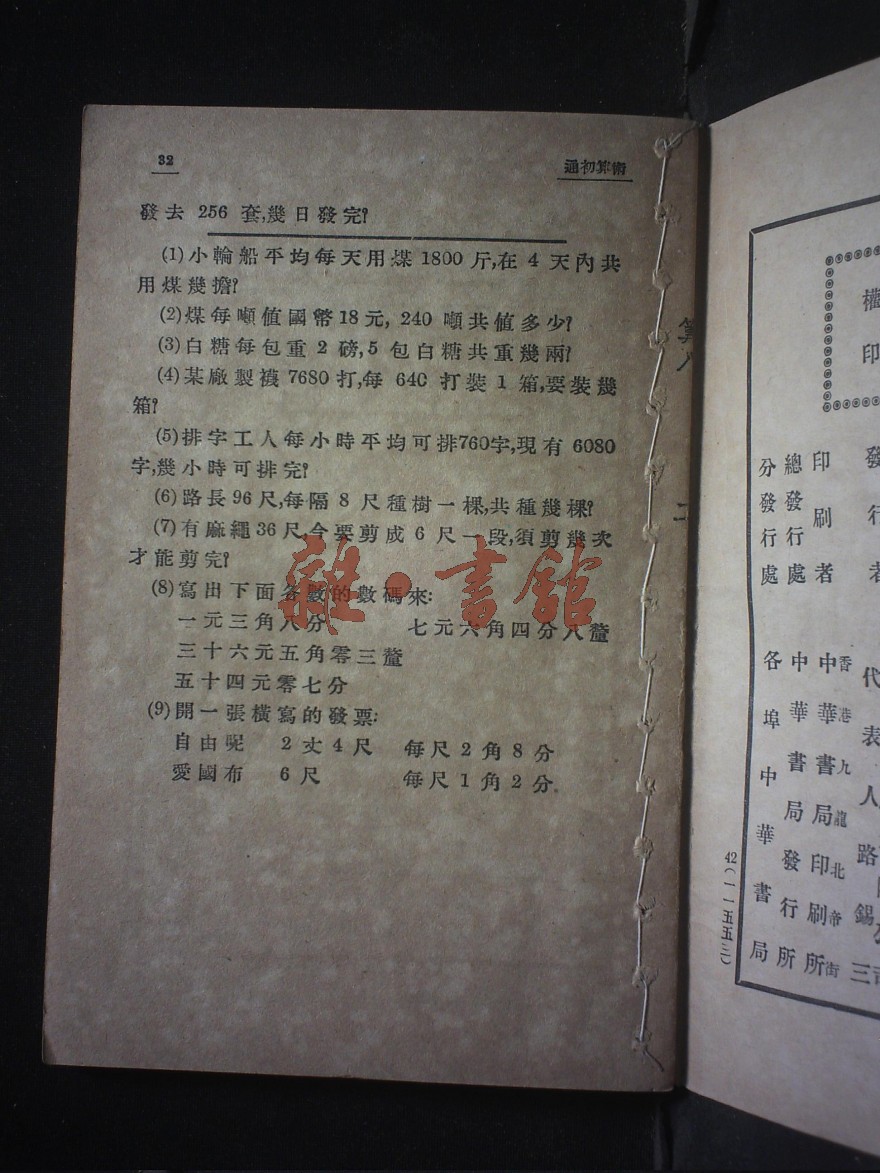 32
通初算術
發去 256 套,幾日發完?
(1)小輪船平均每天用煤 1800 斤,在 4 天內共
用煤幾擔?
(2)煤每噸值國幣18元, 240 噸共值多少?
(3)白糖每包重 2 磅,5 包白糖共重幾兩?
(4)某廠製襪 7680 打,每 640 打裝 1 箱,要裝幾
箱?
(5)排字工人每小時平均可排760字,現有 6080
字,幾小時可排完?
(6)路長96尺,每隔 8 尺種樹一棵,共種幾棵?
(7)有麻繩36尺,今要剪成 6 尺一段,須剪幾次
才能剪完?
(8)寫出下面各數的數碼來:
一元三角八分 七元六角四分八釐
三十六元五角零三釐
五十四元零七分
(9)開一張橫寫的發票:
自由呢 2丈4尺 每尺2角8分
愛國布 6尺 每尺1角2分
雜·書館
權
印
發行者
代表人
路錫三
印刷者
香港九龍北帝街
中華書局印刷所
總發行處
中華書局發行所
分發行處
各埠中華書局
42(一一五五三)